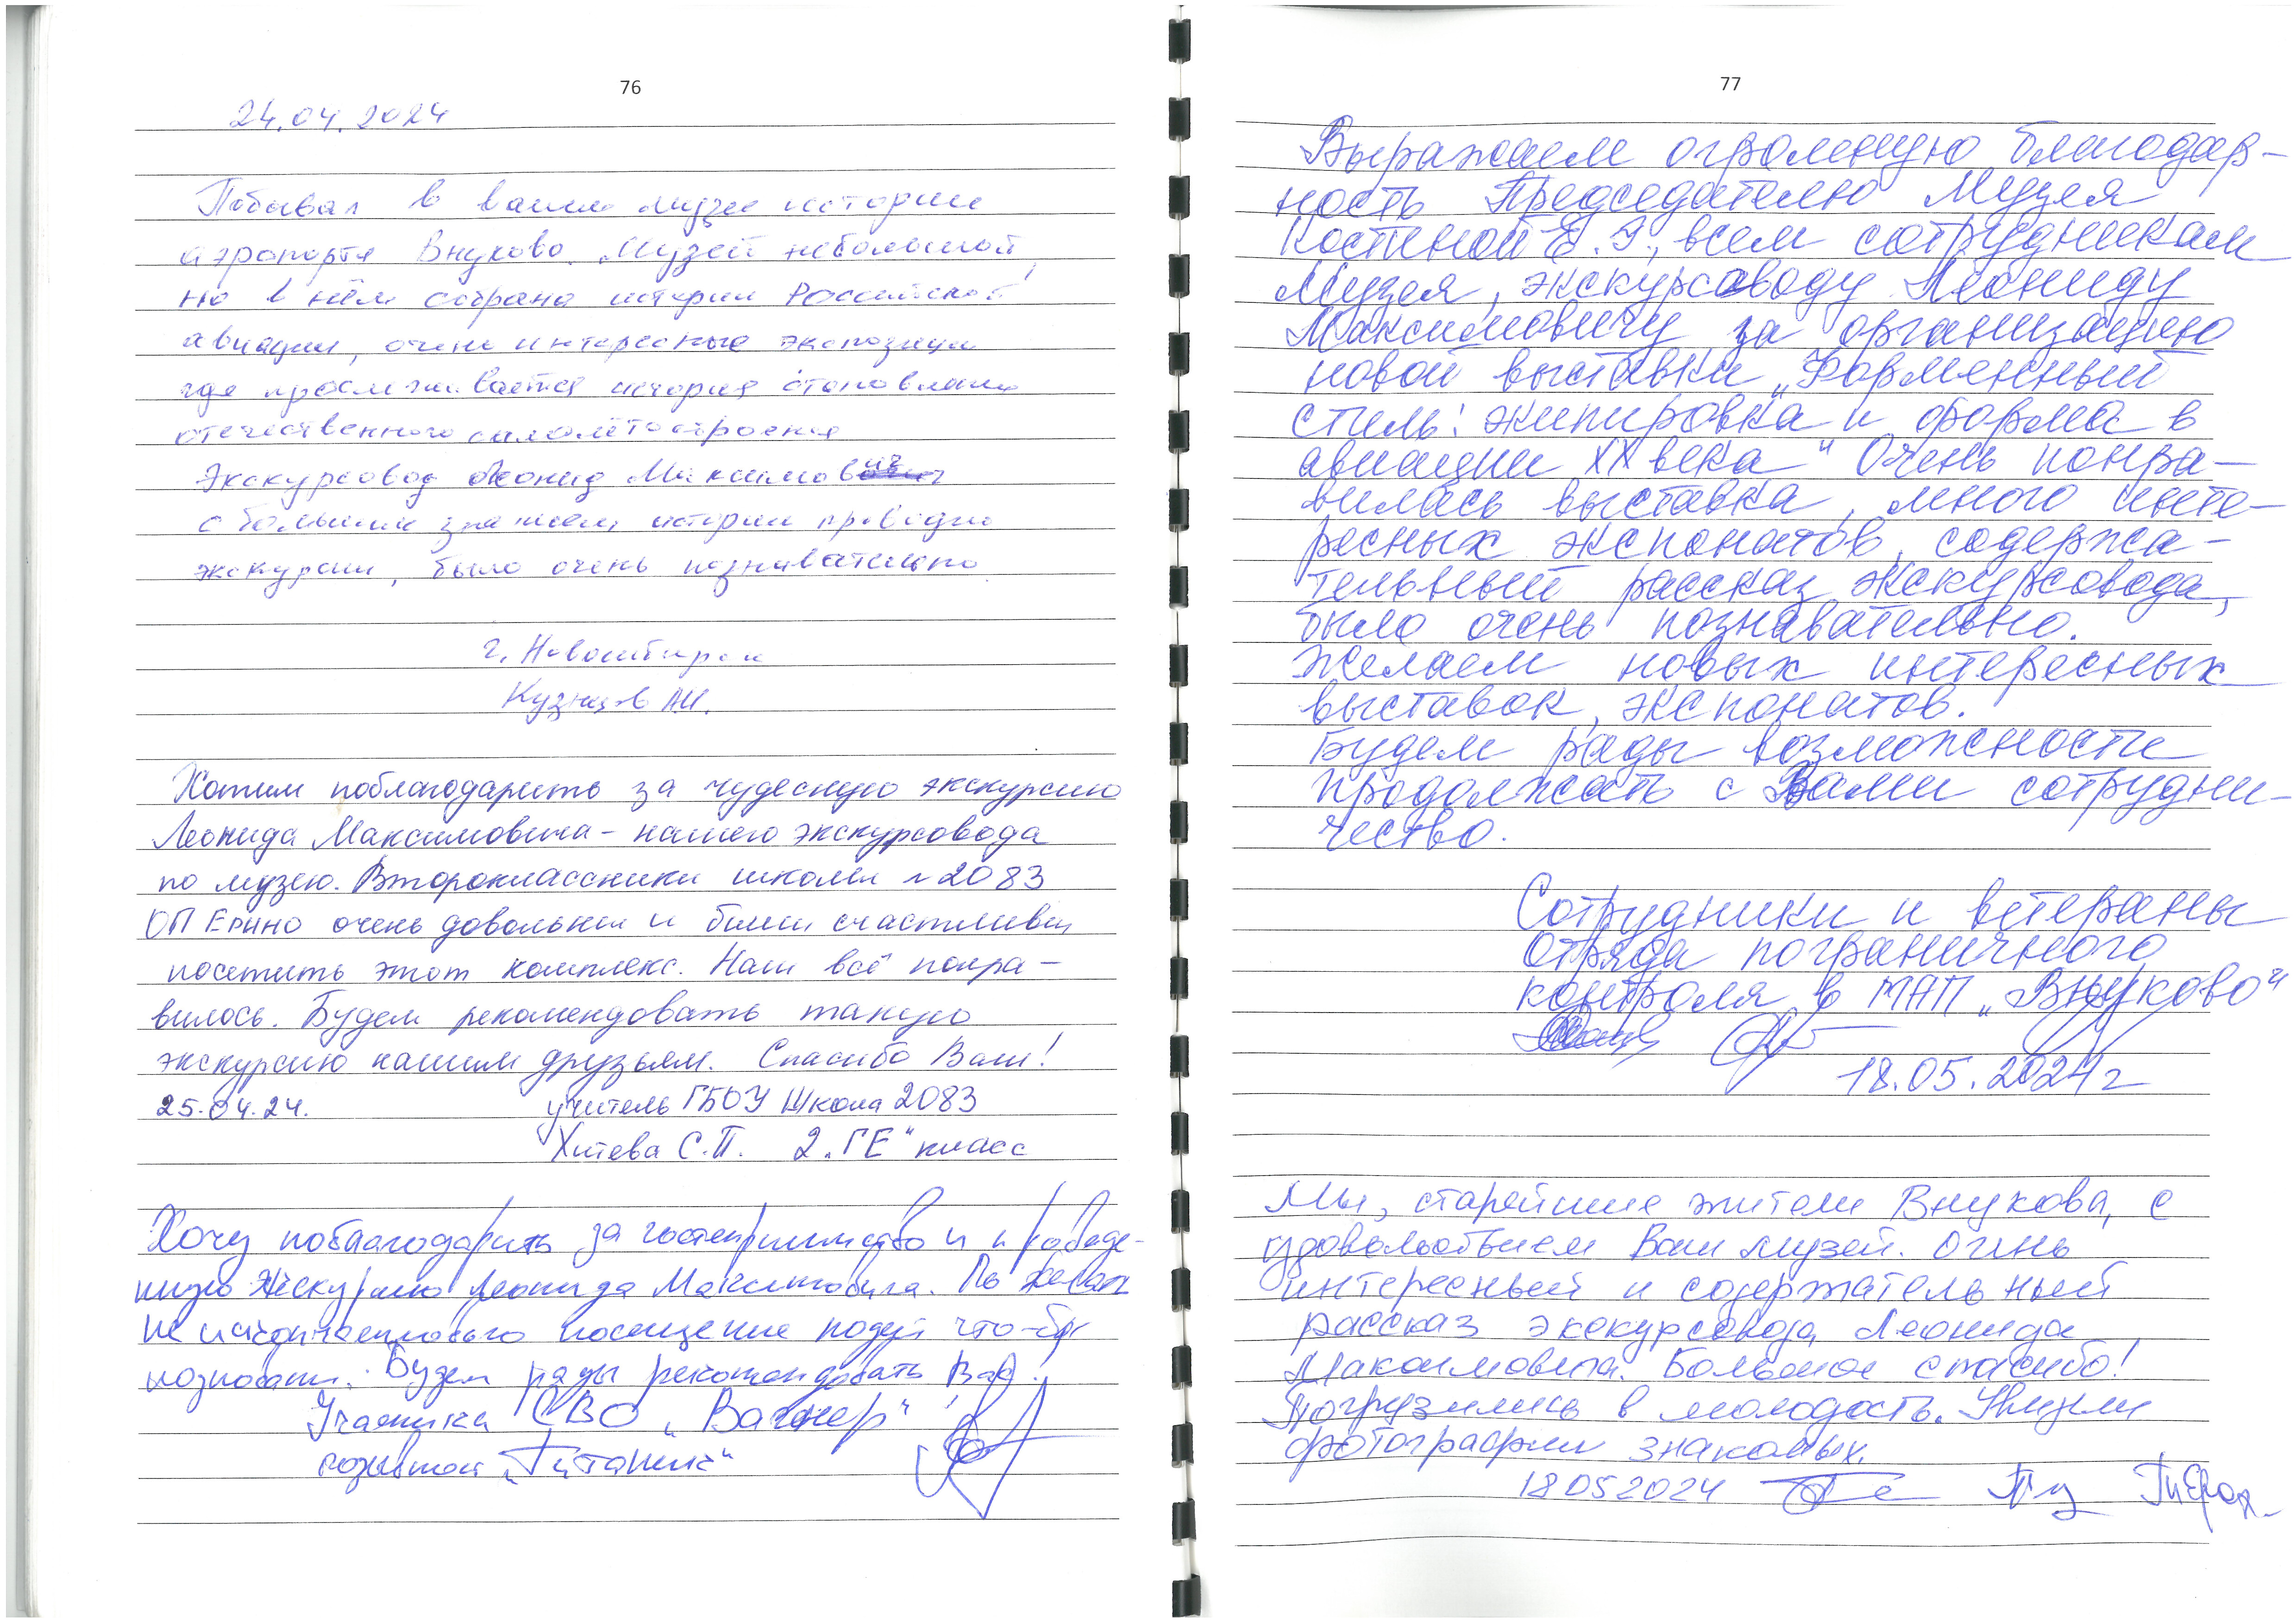 76
24.04.2024
Побывал в вашем музее истории
аэропорта Внуково. Музей небольшой,
но в нём собрана история Российской
авиации, очень интересные экспозиции
где прослеживается история становления
отечественного самолётостроения
Экскурсовод Леонид Максимович
с большим знанием истории проводил
экскурсии, было очень познавательно
г. Новосибирск
Кузнецов
Хотим поблагодарить за чудесную экскурсию
Леонида Максимовича - нашего экскурсовода
по музею. Второклассники школы №2083
ОП Ерино очень довольны и были счастливы
посетить этот комплекс. Нам всё понра-
вилось. Будем рекомендовать такую
экскурсию нашим друзьям. Спасибо Вам!
25.04.24. учитель ГБОУ Школа 2083
Хитева С.П. 2 „ГЕ" класс
Хочу поблагодарить за гостеприимство и проведе-
нную экскурсию Леонида Максимовича.
посещение
Будем рады рекомендовать Вас!
Участника СВО „Вагнер"
позывной „Титаник"
77
Выражаем огромную благодар-
ность Председателю Музея
Костиной Е.Г., всем сотрудникам
Музея, экскурсоводу Леониду
Максимовичу за организацию
новой выставки „Форменный
стиль: экипировка и форма в
авиации XX века" Очень понра-
вилась выставка, много инте-
ресных экспонатов, содержа-
тельный рассказ экскурсовода,
было очень познавательно.
Желаем новых интересных
выставок, экспонатов.
Будем рады возможности
продолжать с Вами сотрудни-
чество.
Сотрудники и ветераны
Отряда пограничного
контроля в МАП „Внуково"
18.05.2024 г
Мы, старейшие жители Внукова, с
удовольствием Ваш музей. Очень
интересный и содержательный
рассказ экскурсовода Леонида
Максимовича. Большое спасибо!
Погрузились в молодость. Увидели
фотографии знакомых.
18052024